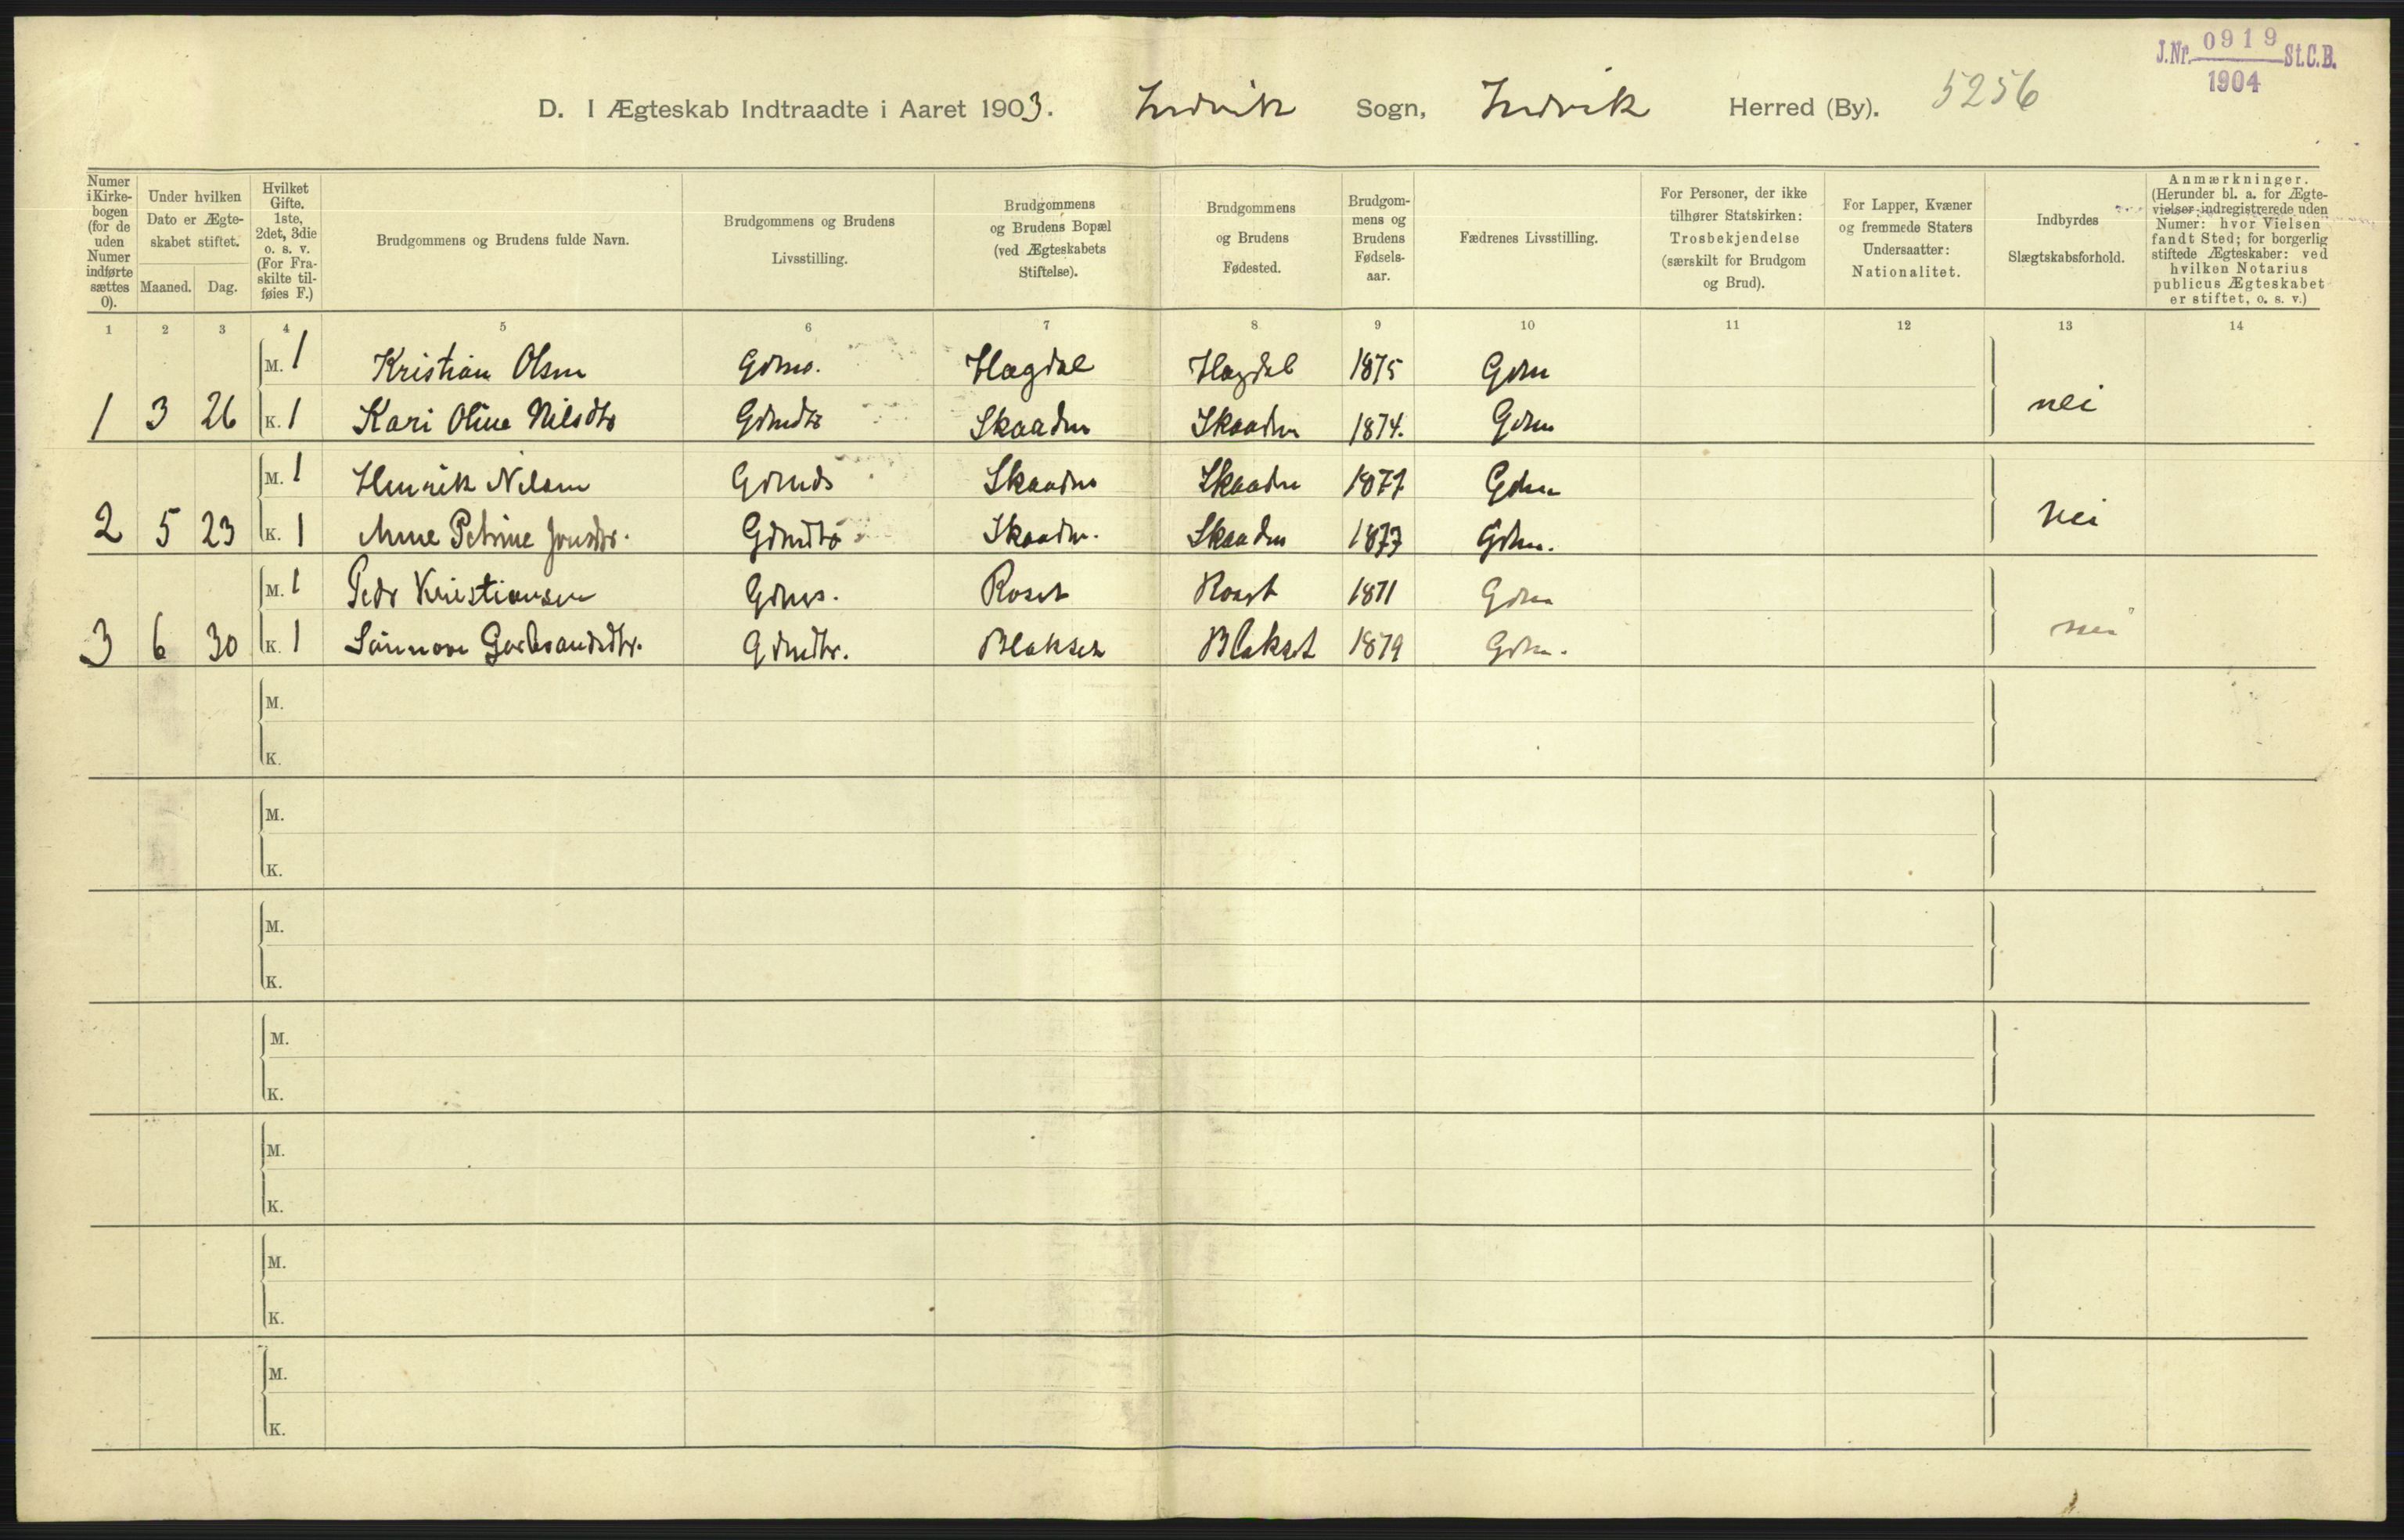 J.Nr. 0919 St.C.B.
1904
D. I Ægteskab Indtraadte i Aaret 1903. Indvik Sogn, Indvik Herred (By). 5256
Numer i Kirke-bogen (for de uden Numer indførte sættes 0).
Under hvilken Dato er Ægte-skabet stiftet.
Maaned. Dag.
Hvilket Gifte. 1ste, 2det, 3die o. s. v. (For Fra-skilte til-føies F.)
Brudgommens og Brudens fulde Navn.
Brudgommens og Brudens Livsstilling.
Brudgommens og Brudens Bopæl (ved Ægteskabets Stiftelse).
Brudgommens og Brudens Fødested.
Brudgom-mens og Brudens Fødsels-aar.
Fædrenes Livsstilling.
For Personer, der ikke tilhører Statskirken: Trosbekjendelse (særskilt for Brudgom og Brud).
For Lapper, Kvæner og fremmede Staters Undersaatter: Nationalitet.
Indbyrdes Slægtskabsforhold.
Anmærkninger. (Herunder bl. a. for Ægte-vielser indregistrerede uden Numer: hvor Vielsen fandt Sted; for borgerlig stiftede Ægteskaber: ved hvilken Notarius publicus Ægteskabet er stiftet, o. s. v.)
1 2 3 4 5 6 7 8 9 10 11 12 13 14
M. 1 Kristian Olsen Gdms. Hagdal Hagdal 1875 Gdm
1 3 26 K. 1 Kari Oline Nilsdtr Gdmdtr Skaaden Skaaden 1874. Gdm nei
M. 1 Henrik Nilsen Gdmds Skaaden Skaaden 1877 Gdm
2 5 23 K. 1 Anne Petrine Jonsdtr. Gdmdtr Skaaden. Skaaden 1877 Gdm. nei
M. 1 Peder Kristiansen Gdms. Roset Roset 1871 Gdm
3 6 30 K. 1 Sünnøve Gerbrandsdtr. Gdmdtr. Blakset Blakset 1879 Gdm. nei
M.
K.
M.
K.
M.
K.
M.
K.
M.
K.
M.
K.
M.
K.